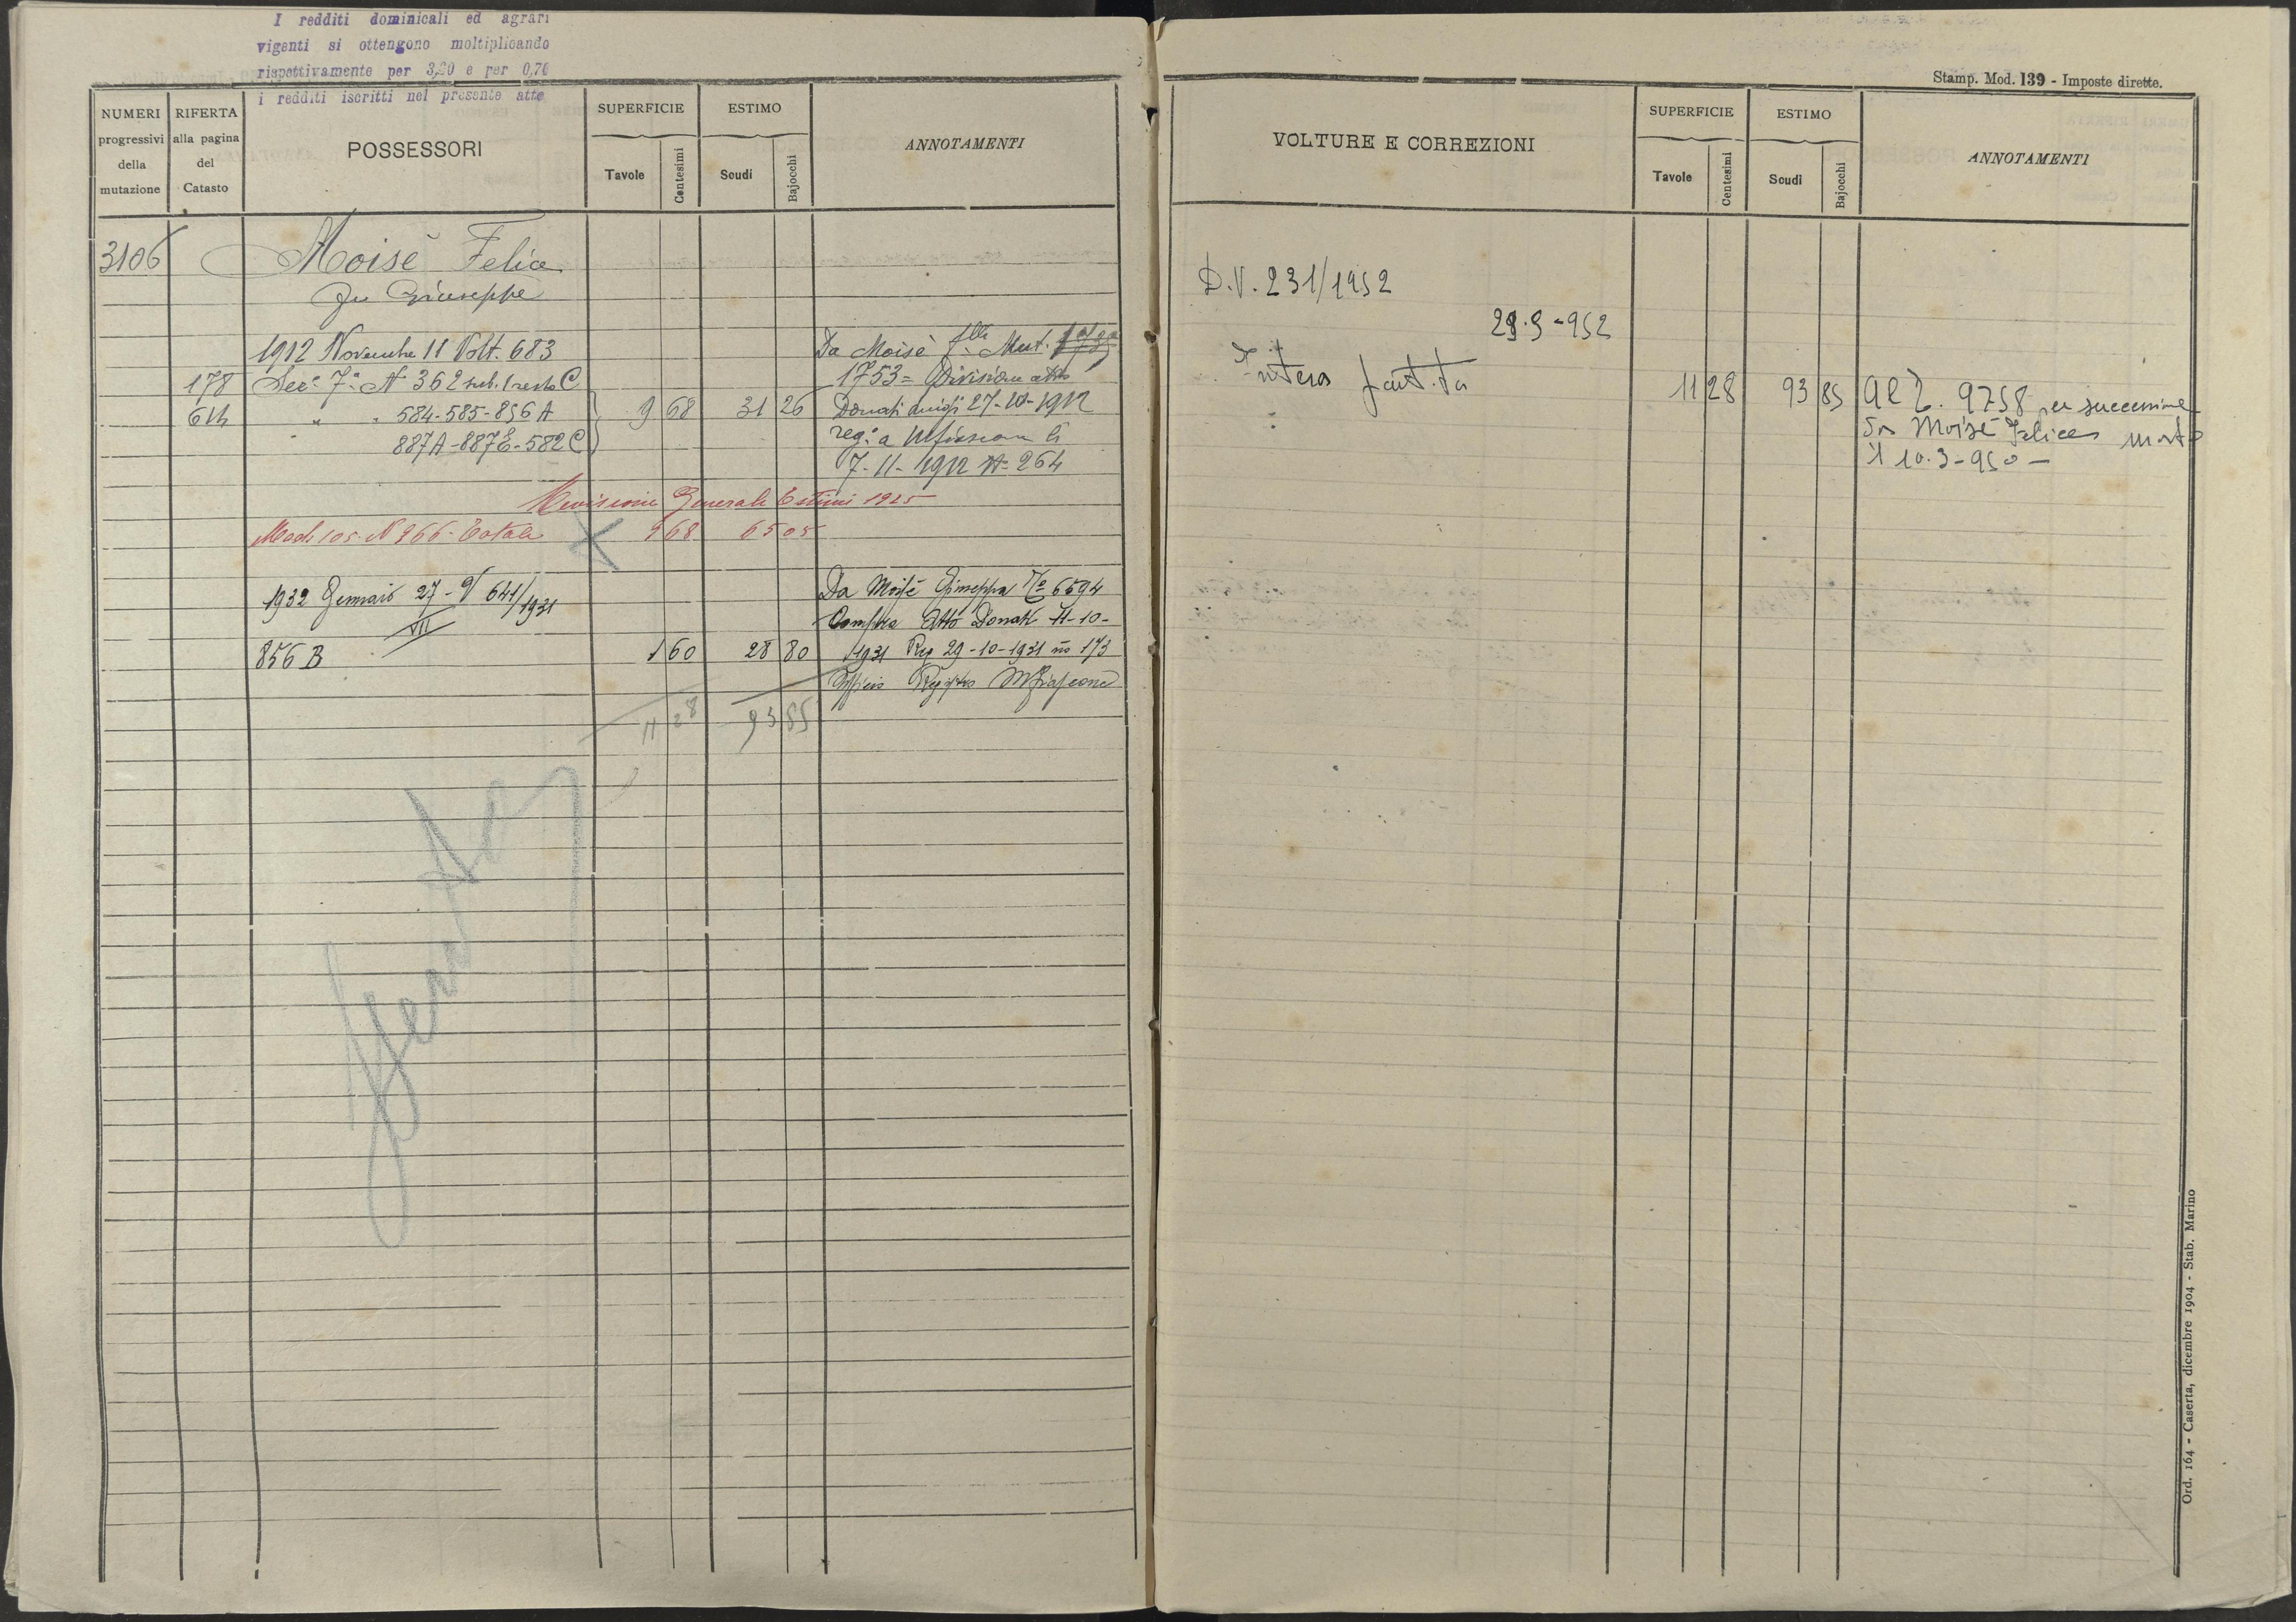 I redditi dominicali ed agrari
vigenti si ottengono moltiplicando
rispettivamente per 3,20 e per 0,70
i redditi iscritti nel presente atto
NUMERI
progressivi
della
mutazione
RIFERTA
alla pagina
del
Catasto
POSSESSORI
SUPERFICIE
Tavole
Centesimi
ESTIMO
Scudi
Bajocchi
ANNOTAMENTI
3106 Moisè Felice
fu Giuseppe
1912 Novembre 11 Volt. 683
178 Sez.e 7.a N 362 sub. 1 resto C
614 " " 584-585-856 A 9 68 31 26
" 887A-887E-582C
Da Moisè f.lli Mut.
1753= Divisione atto
Donati Luigi 27-10-1912
reg.o a Mafiascone li
7-11-1912 N- 264
Revisione Generale Estimi 1925
Mod. 105. N 266- Totale 9 68 65 05
1932 Gennaio 27- V 641/1931
VII
856 B 1 60 28 80
Da Moisè Giuseppa No 6594
Compra Atto Donati 11-10-
1931 Reg 29-10-1931 no 173
Ufficio Registro
11 28 93 85
Stamp. Mod. 139 - Imposte dirette.
VOLTURE E CORREZIONI
SUPERFICIE
Tavole
Centesimi
ESTIMO
Scudi
Bajocchi
ANNOTAMENTI
D.V. 231/1952
29.9-952
Intera partita 11 28 93 85
Al 2. 9758 per successione
Da Moisè Felice morto
il 10.3-950-
Ord. 164 - Caserta, dicembre 1904 - Stab. Marino